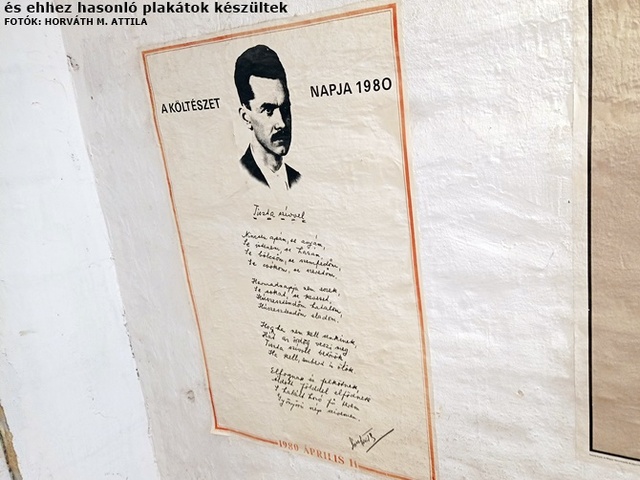 és ehhez hasonló plakátok készültek
FOTÓK: HORVÁTH M. ATTILA
A KÖLTÉSZET
NAPJA 1980
Tiszta szívvel
Nincsen apám, se anyám,
se istenem, se hazám,
se bölcsőm, se szemfedőm,
se csókom, se szeretőm.
Harmadnapja nem eszek,
se sokat, se keveset.
Húsz esztendőm hatalom,
húsz esztendőm eladom.
Hogyha nem kell senkinek,
hát az ördög veszi meg.
Tiszta szívvel betörök,
ha kell, embert is ölök.
Elfognak és felkötnek,
áldott földdel elfödnek
s halált hozó fű terem
gyönyörű szép szívemen.
1980 ÁPRILIS 11